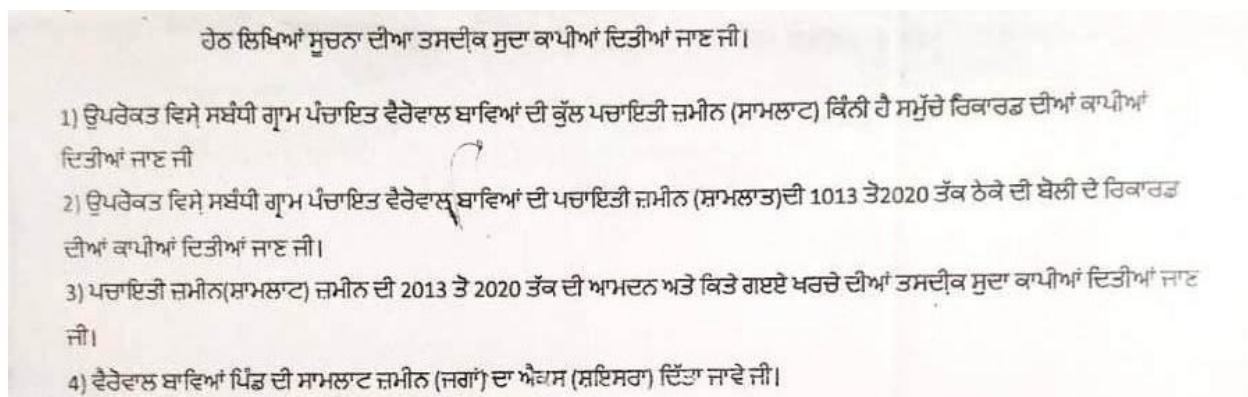 ਹੇਠ ਲਿਖਿਆਂ ਸੂਚਨਾ ਦੀਆ ਤਸਦੀਕ ਸੁਦਾ ਕਾਪੀਆਂ ਦਿਤੀਆਂ ਜਾਣ ਜੀ।
1) ਉਪਰੋਕਤ ਵਿਸੇ ਸਬੰਧੀ ਗ੍ਰਾਮ ਪੰਚਾਇਤ ਵੈਰੋਵਾਲ ਬਾਵਿਆਂ ਦੀ ਕੁੱਲ ਪਚਾਇਤੀ ਜ਼ਮੀਨ (ਸਾਮਲਾਟ) ਕਿੰਨੀ ਹੈ ਸਮੁੱਚੇ ਰਿਕਾਰਡ ਦੀਆਂ ਕਾਪੀਆਂ
ਦਿਤੀਆਂ ਜਾਣ ਜੀ
2) ਉਪਰੋਕਤ ਵਿਸੇ ਸਬੰਧੀ ਗ੍ਰਾਮ ਪੰਚਾਇਤ ਵੈਰੋਵਾਲ ਬਾਵਿਆਂ ਦੀ ਪਚਾਇਤੀ ਜ਼ਮੀਨ (ਸ਼ਾਮਲਾਤ)ਦੀ 1013 ਤੋ2020 ਤੱਕ ਠੇਕੇ ਦੀ ਬੋਲੀ ਦੇ ਰਿਕਾਰਡ
ਦੀਆਂ ਕਾਪੀਆਂ ਦਿਤੀਆਂ ਜਾਣ ਜੀ।
3) ਪਚਾਇਤੀ ਜ਼ਮੀਨ(ਸ਼ਾਮਲਾਟ) ਜ਼ਮੀਨ ਦੀ 2013 ਤੋ 2020 ਤੱਕ ਦੀ ਆਮਦਨ ਅਤੇ ਕਿਤੇ ਗਏਏ ਖਰਚੇ ਦੀਆਂ ਤਸਦੀਕ ਸੁਦਾ ਕਾਪੀਆਂ ਦਿਤੀਆਂ ਜਾਣ
ਜੀ।
4) ਵੈਰੋਵਾਲ ਬਾਵਿਆਂ ਪਿੰਡ ਦੀ ਸਾਮਲਾਟ ਜ਼ਮੀਨ (ਜਗਾਂ) ਦਾ ਐਕਸ (ਸ਼ਇਸਰਾ) ਦਿੱਤਾ ਜਾਵੇ ਜੀ।